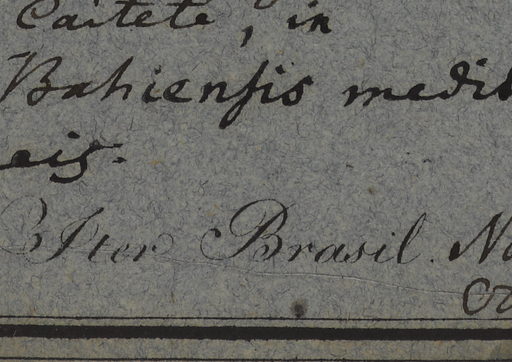 Caitete, in
Bahiensis medit
eis.
Iter Brasil. No